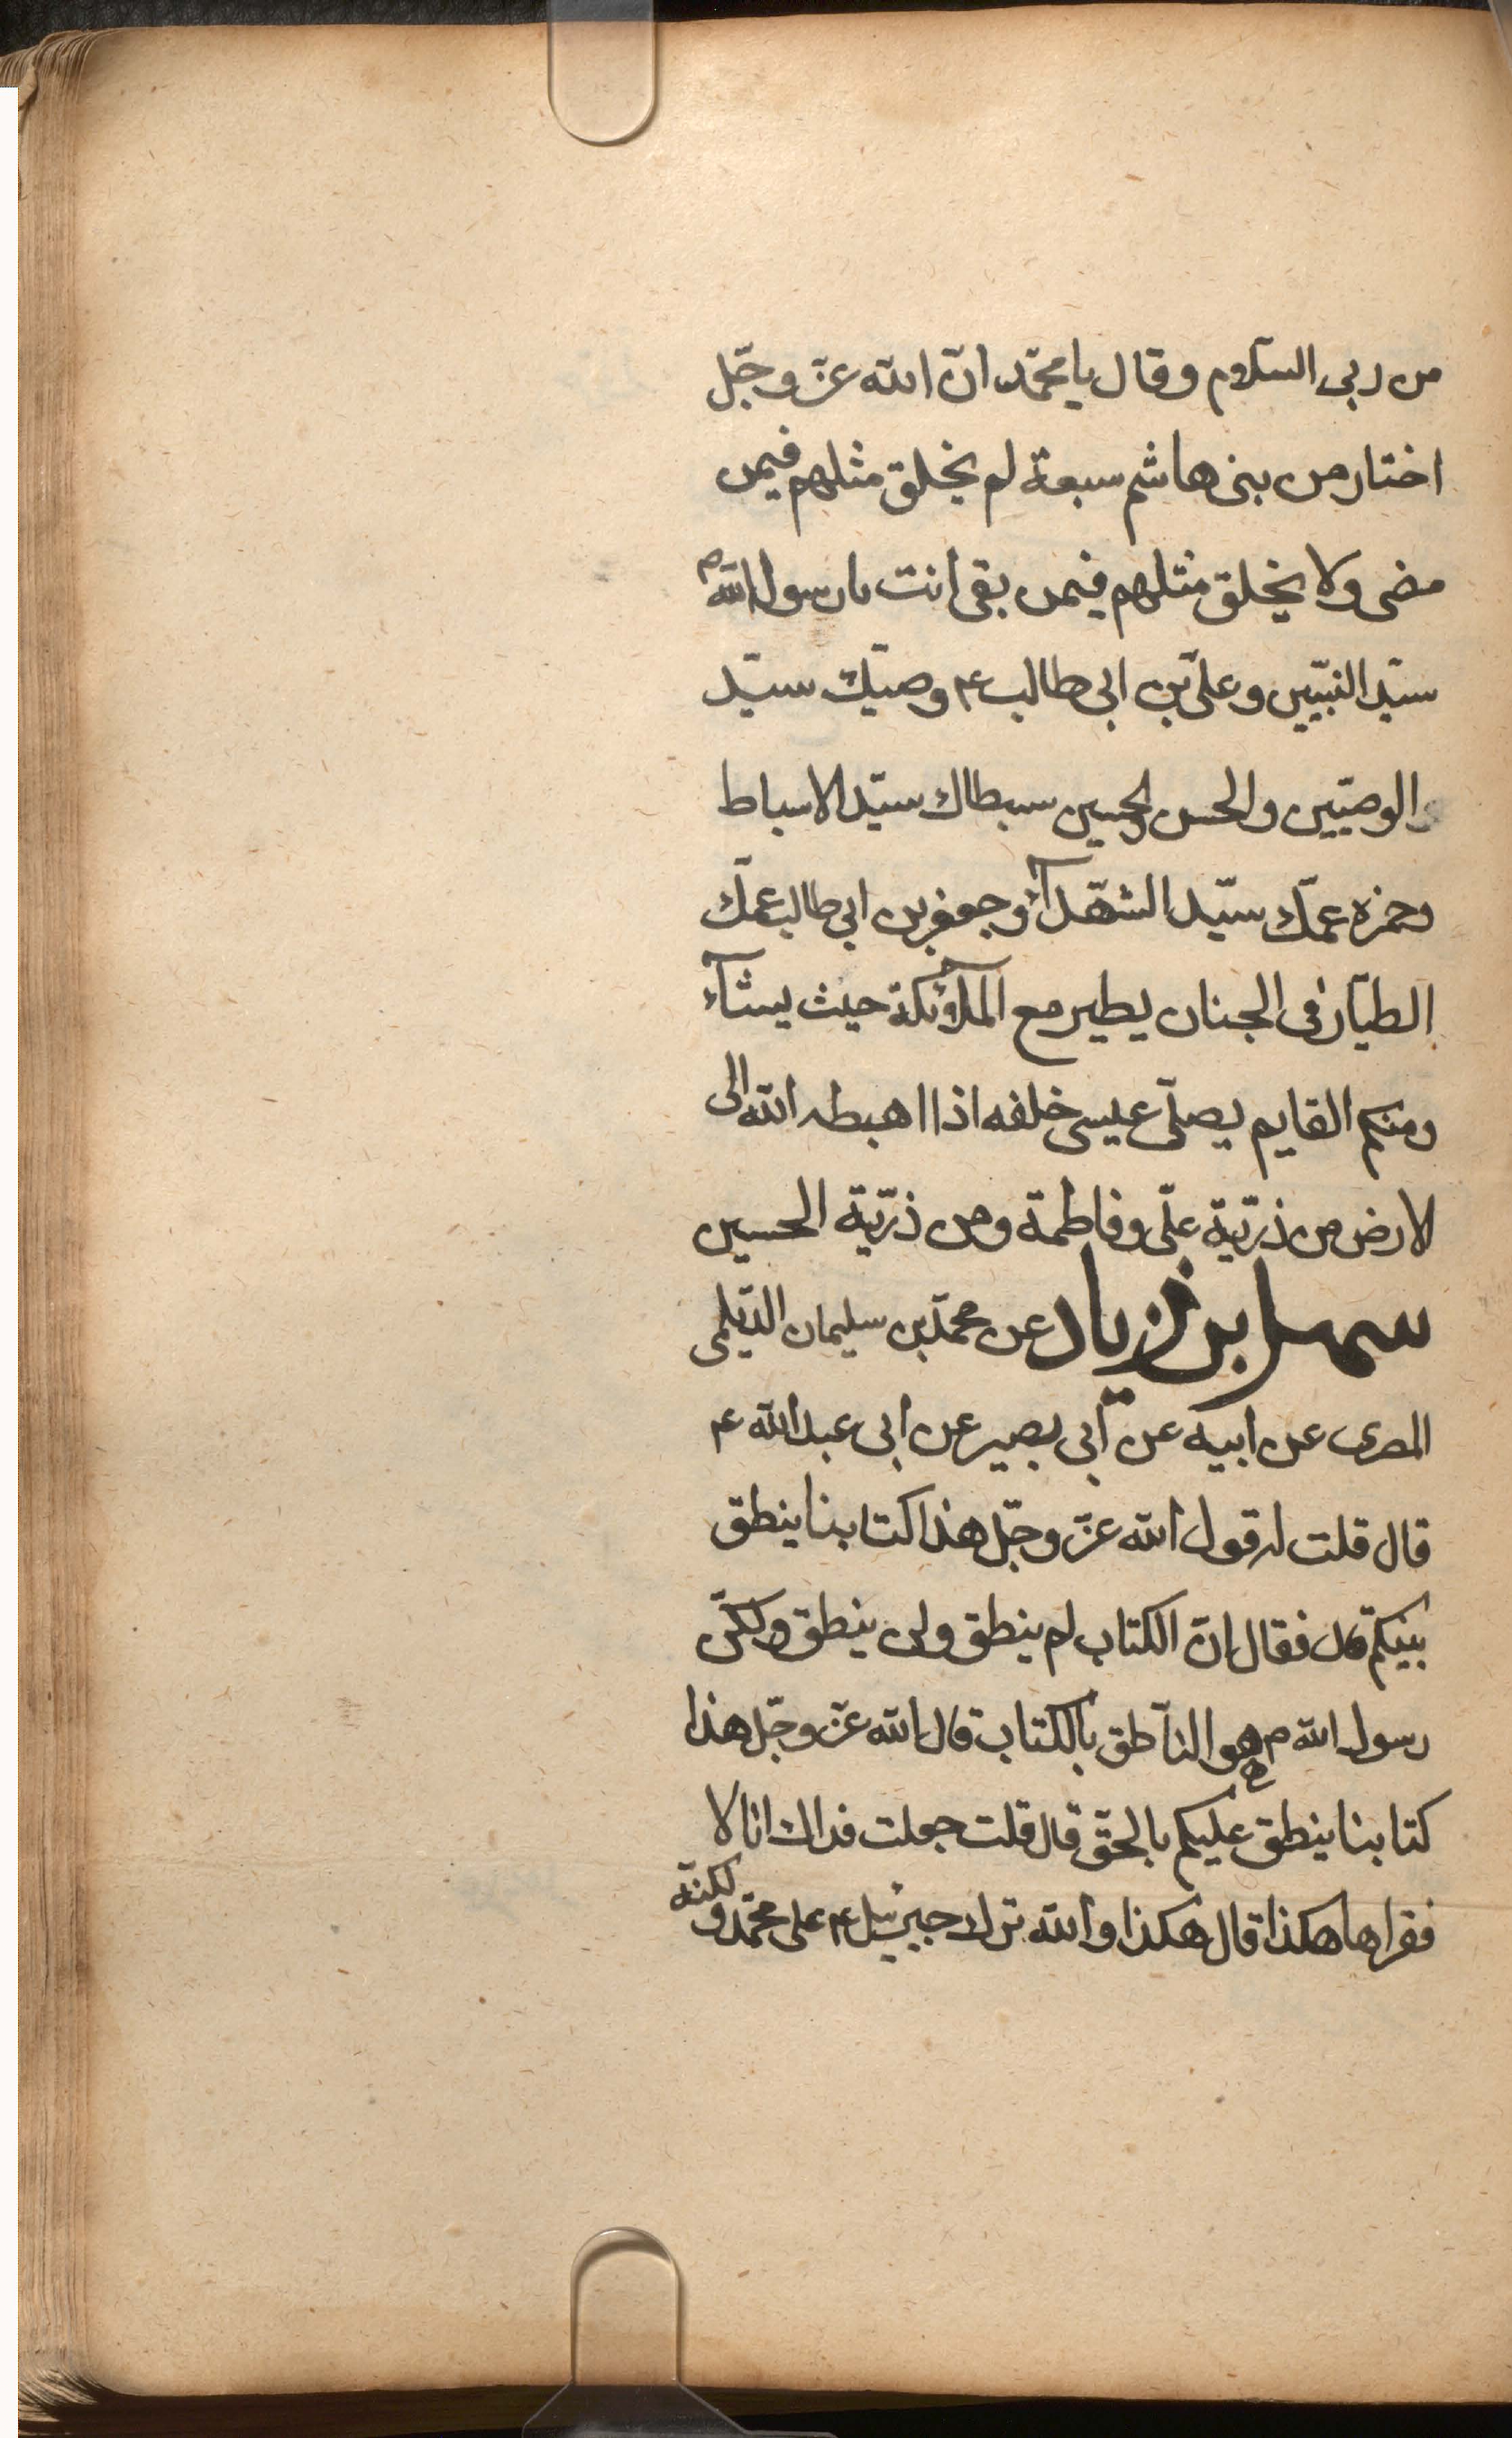 من ربى السّلام وقال يا محمّد انّ الله عزّ وجّل
اختار من بنى هاشم سبعة لم يخلق مثلهم فيمن
مضى ولا يخلق مثلهم فيمن بقى انت يا رسول الله ص
سيّد النبيّين وعلىّ بن ابى طالب ع وصيّك سيّد
الوصيّين والحسن والحسين سبطاك سيّد الاسباط
وحمزه عمّك سيّد الشهّدآء وجعفر بن ابى طالب عمّك
الطيّار فى الجنان يطير مع الملآئكة حيث يشآء
ومنكم القايم يصلّى عيسى خلفه اذا اهبطه الله الى
الارض من ذرّيّة علىّ وفاطمة ومن ذرّيّة الحسين
سهل بن زياد عن محمّد بن سليمان الدّيلمى
المصرى عن ابيه عن ابى بصير عن ابى عبد الله ع
قال قلت له قول الله عزّ وجّل هذا كتابنا ينطق
بينكم قال فقال انّ الكتاب لم ينطق ولن ينطق ولكنّ
رسول الله ص هو النّاطق بالكتاب قال الله عزّ وجّل هذا
كتابنا ينطق عليكم بالحقّ قال قلت جعلت فداك انا لا
فقراها هكذا قال هكذا والله نزل جبرئيل ع على محمّد ولكنّه